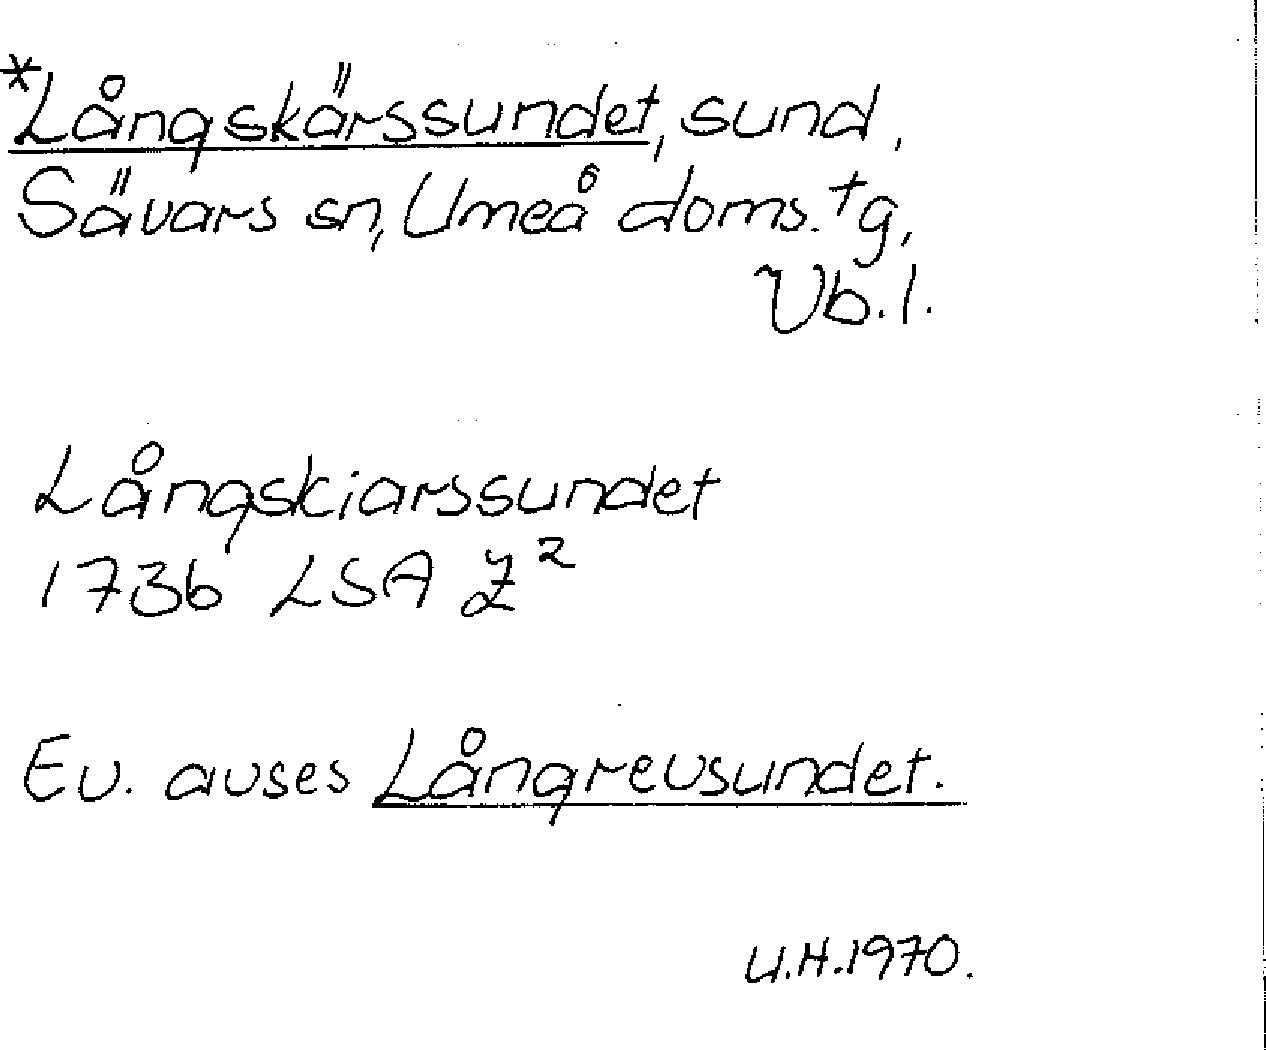 *Långskärssundet, sund,
Sävars sn, Umeå doms.tg,
Vb.l.
Långskiarssundet
1736 LSA Z²
Ev. avses Långrevsundet.
U.H.1970.